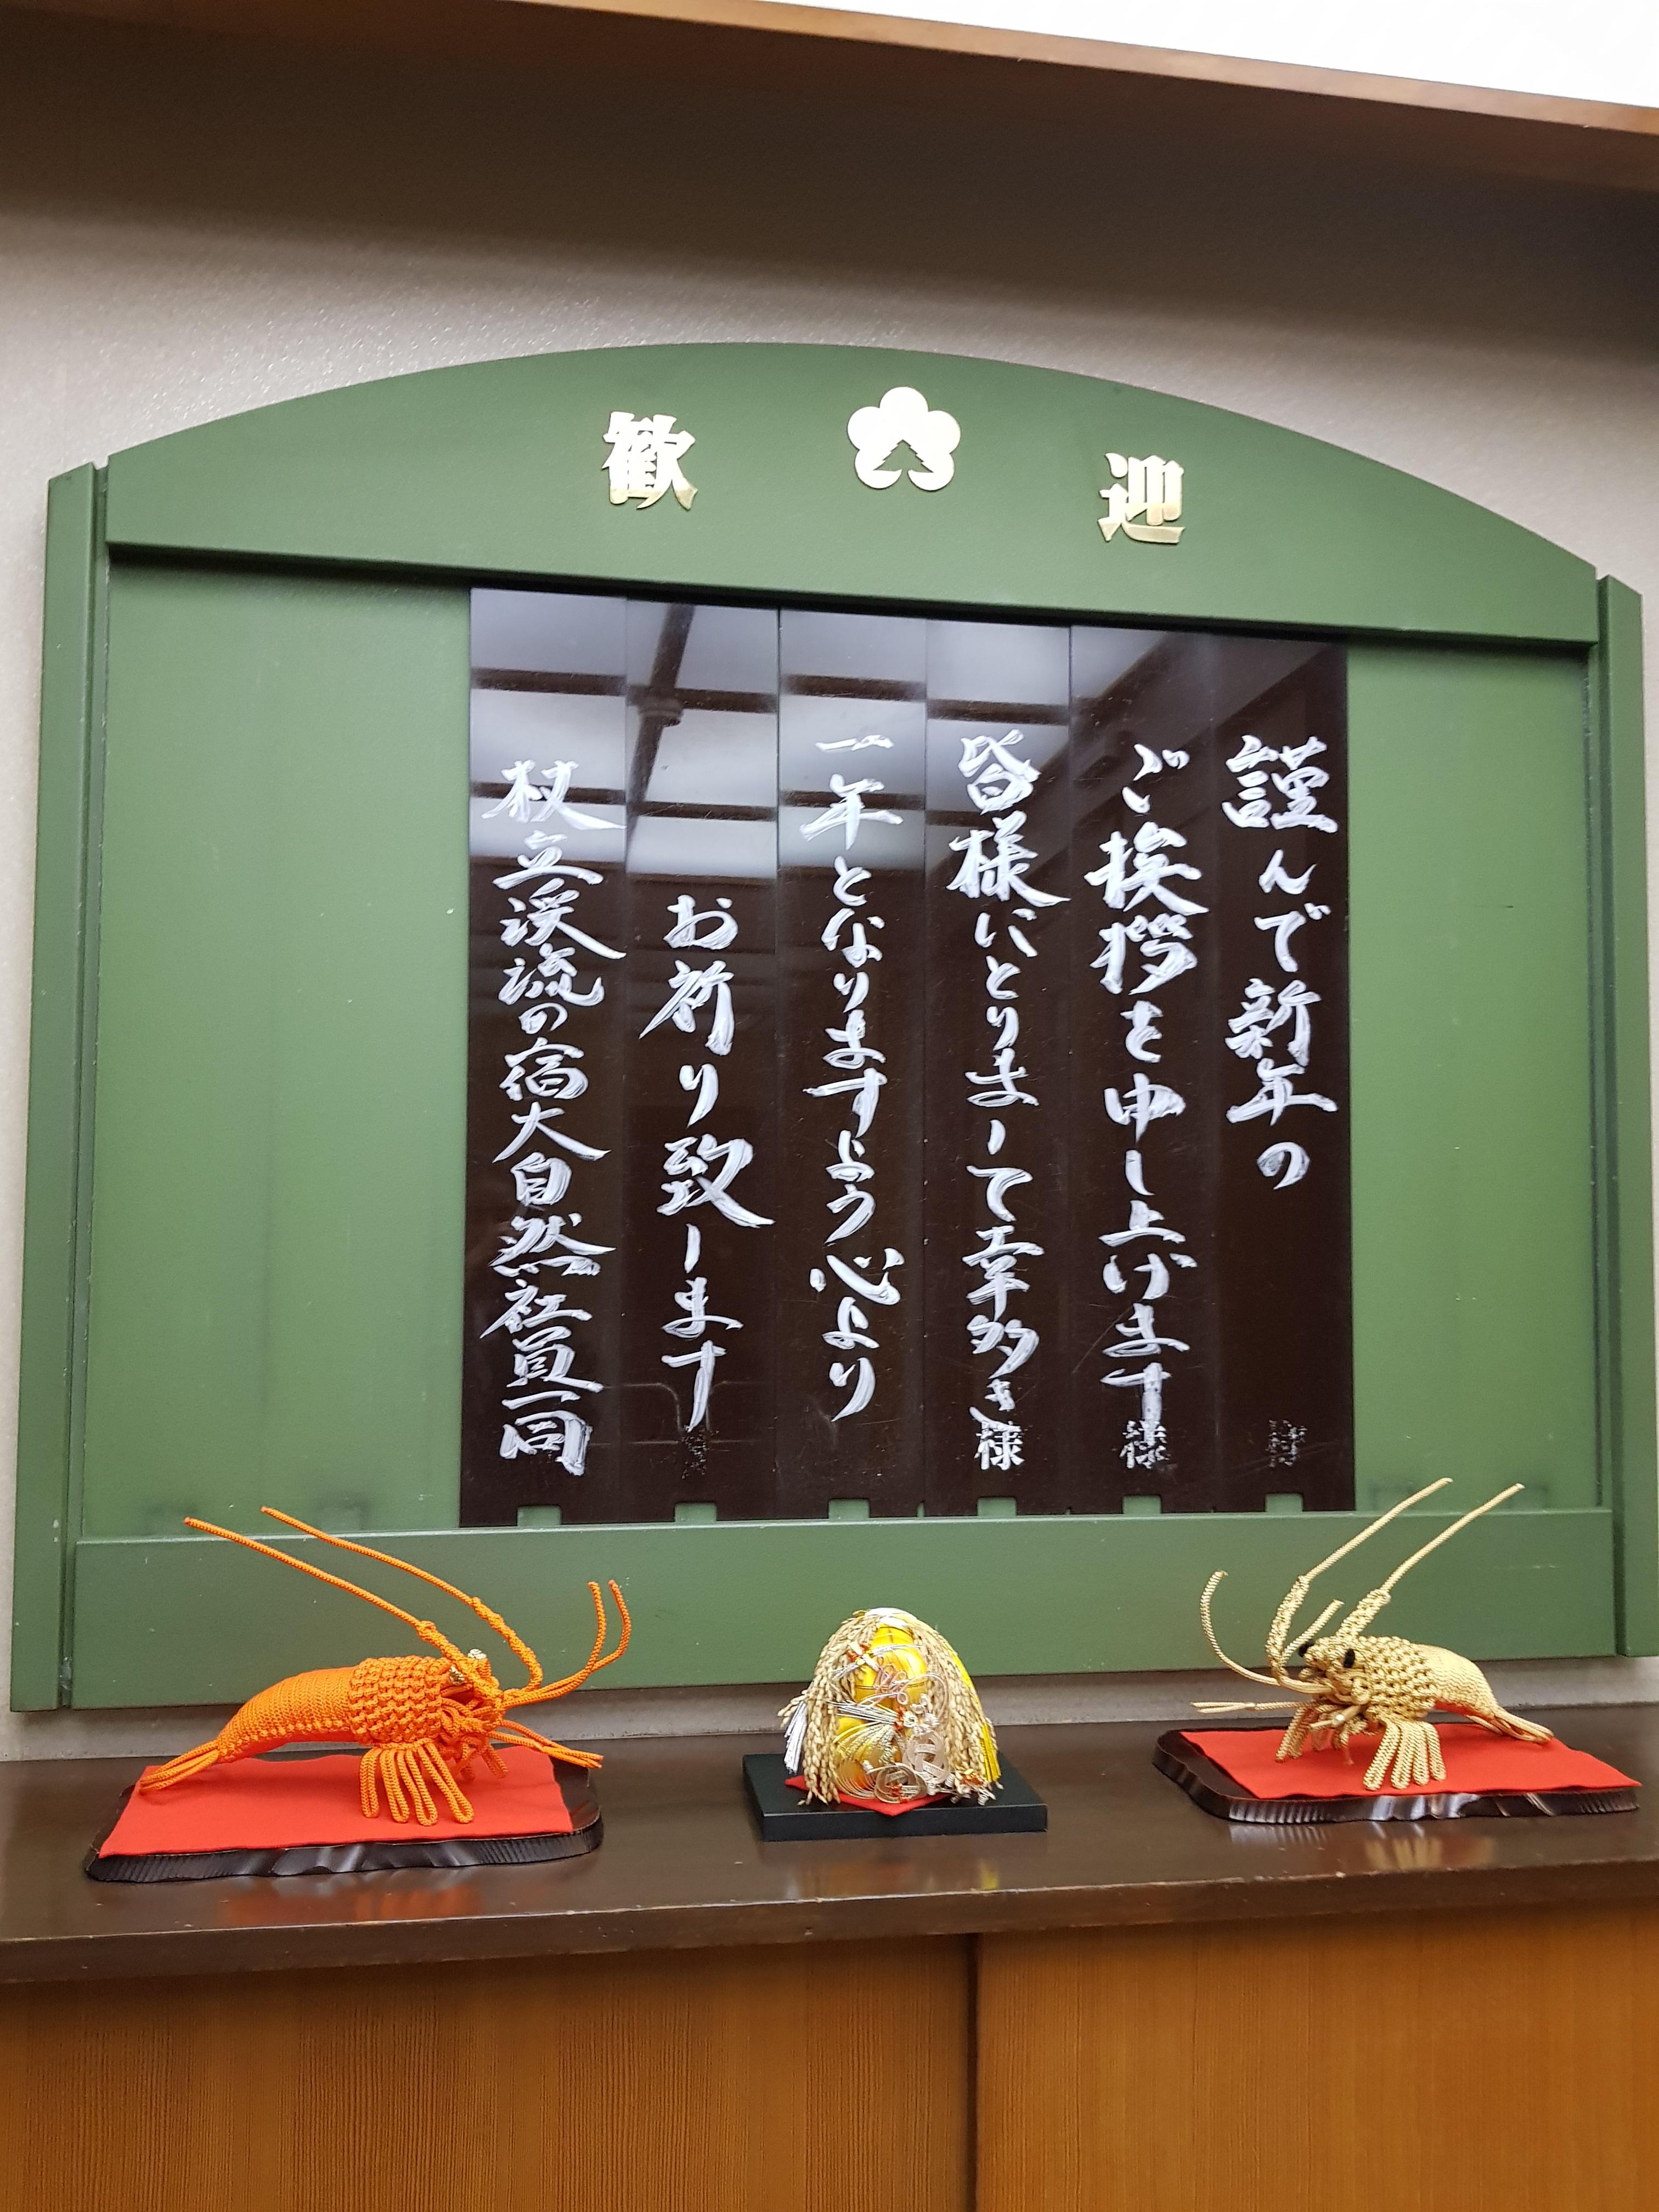 歓迎
謹んで新年の
ご挨拶を申し上げます様
皆様にとりまして幸多き様
一年となりますよう心より
お祈り致します
杖立渓流の宿大自然社員一同